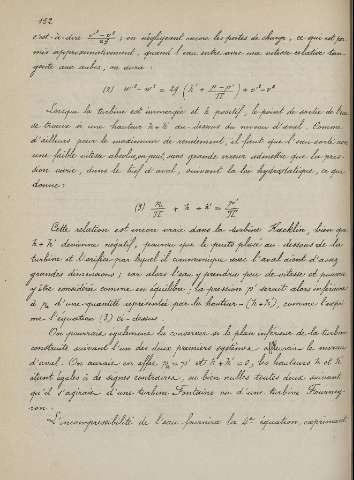 152
c'est-à-dire (v'² - v²)/2g ; en négligeant encore les pertes de charge, ce qui est per-
mis approximativement, quand l'eau entre avec une vitesse relative tan-
gente aux aubes, on aura :
(2) w'² - w² = 2g (h' + (p - p')/Π) + v'² - v²
Lorsque la turbine est immergée et h positif, le point de sortie de l'eau
se trouve à une hauteur h + h' au-dessus du niveau d'aval. Comme
d'ailleurs pour le maximum de rendement, il faut que l'eau sorte avec
une faible vitesse absolue, on peut, sans grande erreur admettre que la pres-
sion varie, dans le bief d'aval, suivant la loi hydrostatique, ce qui
donne :
(3) + h + h' =
Cette relation est encore vraie dans la turbine Kœcklin, bien que
h + h' devienne négatif, pourvu que le puits placé au-dessous de la
turbine et l'orifice par lequel il communique avec l'aval aient d'assez
grandes dimensions ; car alors l'eau y prendra peu de vitesse et pourra
y être considérée comme en équilibre : la pression p' serait alors inférieure
à d'une quantité représentée par la hauteur - (h + h'), comme l'expri-
me l'équation (3) ci-dessus
On pourrait également la conserver si le plan inférieur de la turbine
construite suivant l'un des deux premiers systèmes, affleurait le niveau
d'aval. On aurait en effet = p' et h + h' = 0, les hauteurs h et h'
étant égales et de signes contraires, ou bien nulles toutes deux suivant
qu'il s'agirait d'une turbine Fontaine ou d'une turbine Fourney-
ron.
L'incompressibilité de l'eau fournira la 4e équation, exprimant